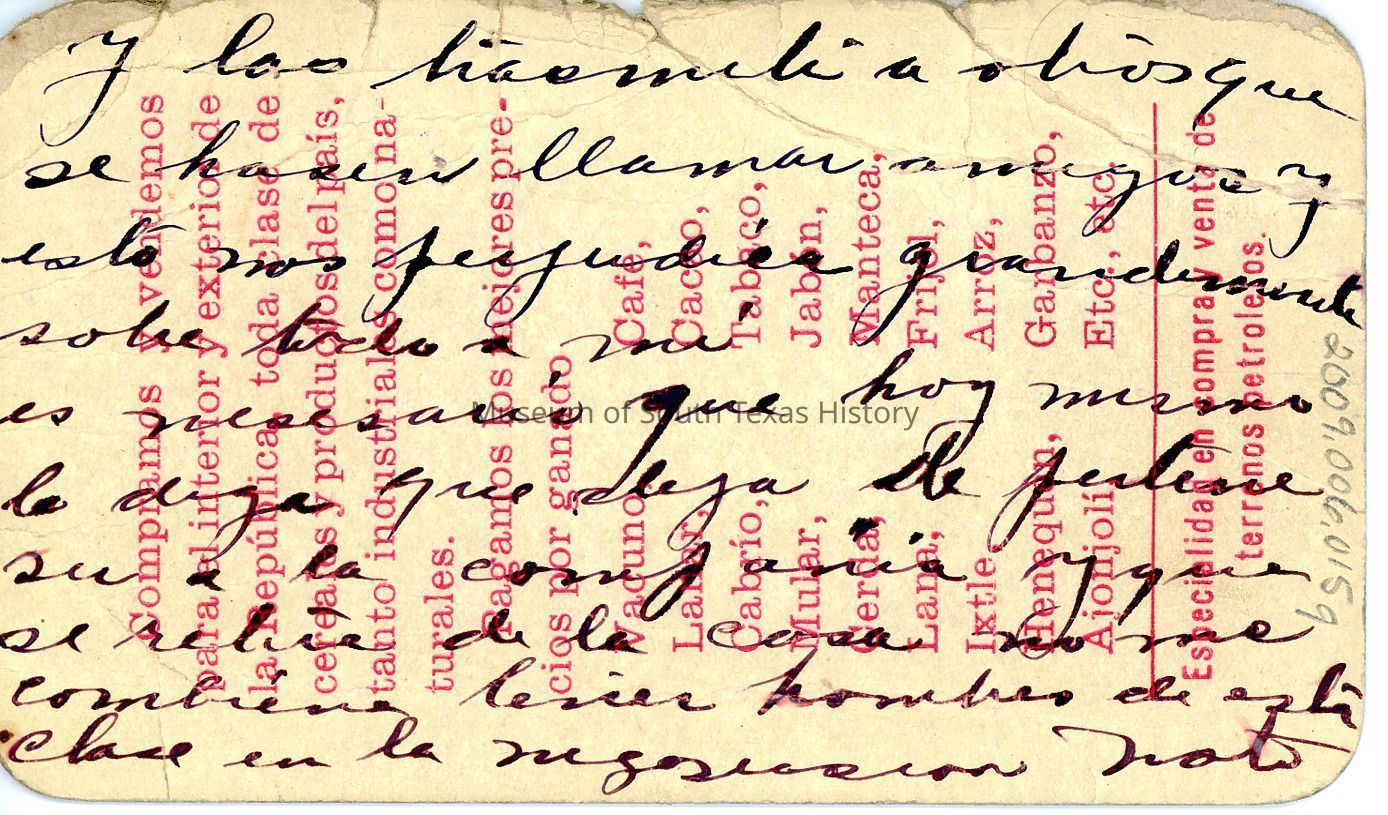 Y las trasmite a otros que
se hasen llamar amigos y
esto nos perjudica grandemente
sobre todo a mi
es nesesario que hoy mismo
le diga que deja de pertene
ser a la compañia y que
se retire de la casa no me
combiene tener hombres de esta
clase en la negosiasion Nato
Compramos y vendemos
para el interior y exterior de
la República, toda clase de
cereales y productos del país,
tanto industriales como na-
turales.
Pagamos los mejores pre-
cios por ganado
Vacuno, Café,
Lanar, Cacao,
Cabrío, Tabaco,
Mular, Jabón,
Cerda, Manteca,
Lana, Frijol,
Ixtle, Arroz,
Henequén, Garbanzo,
Ajonjolí, Etc., etc.
Especialidad en compra y venta de
terrenos petroleros.
2009.006.0159
Museum of South Texas History